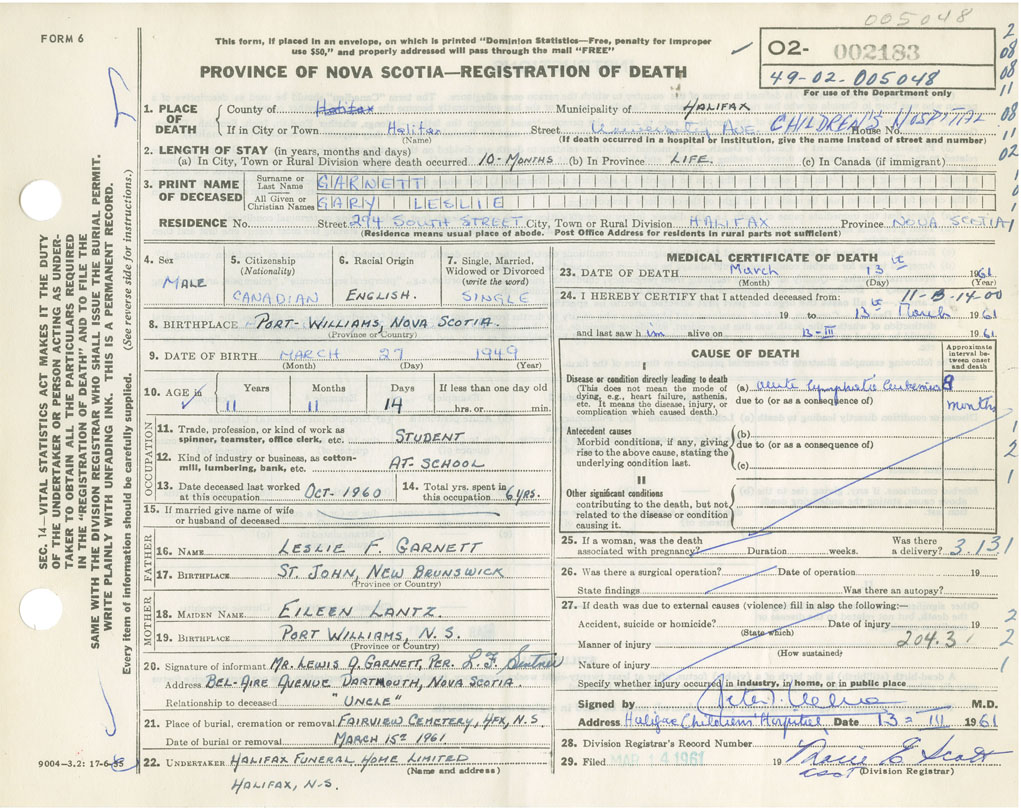 005048
FORM 6
This form, if placed in an envelope, on which is printed "Dominion Statistics—Free, penalty for improper
use $50," and properly addressed will pass through the mail "FREE"
PROVINCE OF NOVA SCOTIA—REGISTRATION OF DEATH
02- 002183
49-02-005048
For use of the Department only
1. PLACE OF DEATH
County of Halifax Municipality of HALIFAX
If in City or Town Halifax Street University Ave. CHILDREN'S HOSPITAL House No.
(Name) (If death occurred in a hospital or institution, give the name instead of street and number)
2. LENGTH OF STAY (in years, months and days)
(a) In City, Town or Rural Division where death occurred 10-MONTHS (b) In Province LIFE. (c) In Canada (if immigrant)
3. PRINT NAME OF DECEASED
Surname or Last Name GARNETT
All Given or Christian Names GARY LESLIE
RESIDENCE No. Street 294 SOUTH STREET City, Town or Rural Division HALIFAX Province NOVA SCOTIA
(Residence means usual place of abode. Post Office Address for residents in rural parts not sufficient)
4. Sex MALE
5. Citizenship (Nationality) CANADIAN
6. Racial Origin ENGLISH.
7. Single, Married, Widowed or Divorced (write the word) SINGLE
8. BIRTHPLACE PORT-WILLIAMS, NOVA SCOTIA.
(Province or Country)
9. DATE OF BIRTH MARCH 27 1949
(Month) (Day) (Year)
10. AGE in Years Months Days If less than one day old
11 11 14 hrs. or min.
OCCUPATION
11. Trade, profession, or kind of work as spinner, teamster, office clerk, etc. STUDENT
12. Kind of industry or business, as cotton-mill, lumbering, bank, etc. AT-SCHOOL
13. Date deceased last worked at this occupation OCT-1960
14. Total yrs. spent in this occupation 6 YRS.
15. If married give name of wife or husband of deceased
FATHER
16. NAME LESLIE F. GARNETT
17. BIRTHPLACE ST. JOHN, NEW BRUNSWICK
(Province or Country)
MOTHER
18. MAIDEN NAME EILEEN LANTZ.
19. BIRTHPLACE PORT WILLIAMS, N.S.
(Province or Country)
20. Signature of informant MR. LEWIS A. GARNETT, PER. L.F.
Address BEL-AIRE AVENUE DARTMOUTH, NOVA SCOTIA.
Relationship to deceased "UNCLE"
21. Place of burial, cremation or removal FAIRVIEW CEMETERY, HFX, N.S.
Date of burial or removal MARCH 15th 1961.
22. UNDERTAKER HALIFAX FUNERAL HOME LIMITED
(Name and address)
HALIFAX, N-S.
MEDICAL CERTIFICATE OF DEATH
23. DATE OF DEATH March 13th 1961
(Month) (Day) (Year)
24. I HEREBY CERTIFY that I attended deceased from: 11-B-14-00
19 to 13th March 1961
and last saw him alive on 13-III 1961
CAUSE OF DEATH
Approximate interval between onset and death
I
Disease or condition directly leading to death
(This does not mean the mode of dying, e.g., heart failure, asthenia, etc. It means the disease, injury, or complication which caused death.)
(a) acute lymphatic leukemia 8 months
due to (or as a consequence of)
Antecedent causes
Morbid conditions, if any, giving rise to the above cause, stating the underlying condition last.
(b)
due to (or as a consequence of)
(c)
II
Other significant conditions
contributing to the death, but not related to the disease or condition causing it.
25. If a woman, was the death associated with pregnancy? Duration weeks. Was there a delivery? 3.131
26. Was there a surgical operation? Date of operation 19
State findings Was there an autopsy?
27. If death was due to external causes (violence) fill in also the following:—
Accident, suicide or homicide? Date of injury 19
(State which)
Manner of injury 204.3
(How sustained)
Nature of injury
Specify whether injury occurred in industry, in home, or in public place
Signed by M.D.
Address Halifax Childrens' Hospital Date 13-III 1961
28. Division Registrar's Record Number
29. Filed MAR 14 1961 19 Scott
(Division Registrar)
SEC. 14—VITAL STATISTICS ACT MAKES IT THE DUTY
OF THE UNDERTAKER OR PERSON ACTING AS UNDER-
TAKER TO OBTAIN ALL THE PARTICULARS REQUIRED
IN THE "REGISTRATION OF DEATH" AND TO FILE THE
SAME WITH THE DIVISION REGISTRAR WHO SHALL ISSUE THE BURIAL PERMIT.
WRITE PLAINLY WITH UNFADING INK. THIS IS A PERMANENT RECORD.
Every item of information should be carefully supplied. (See reverse side for instructions.)
9004-3.2: 17-6-
2
08
08
11
08
11
02
1
2
1
2
2
1